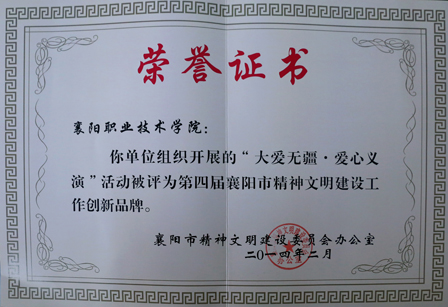 荣誉证书
襄阳职业技术学院：
你单位组织开展的“大爱无疆·爱心义
演”活动被评为第四届襄阳市精神文明建设工
作创新品牌。
襄阳市精神文明建设委员会办公室
二〇一四年二月